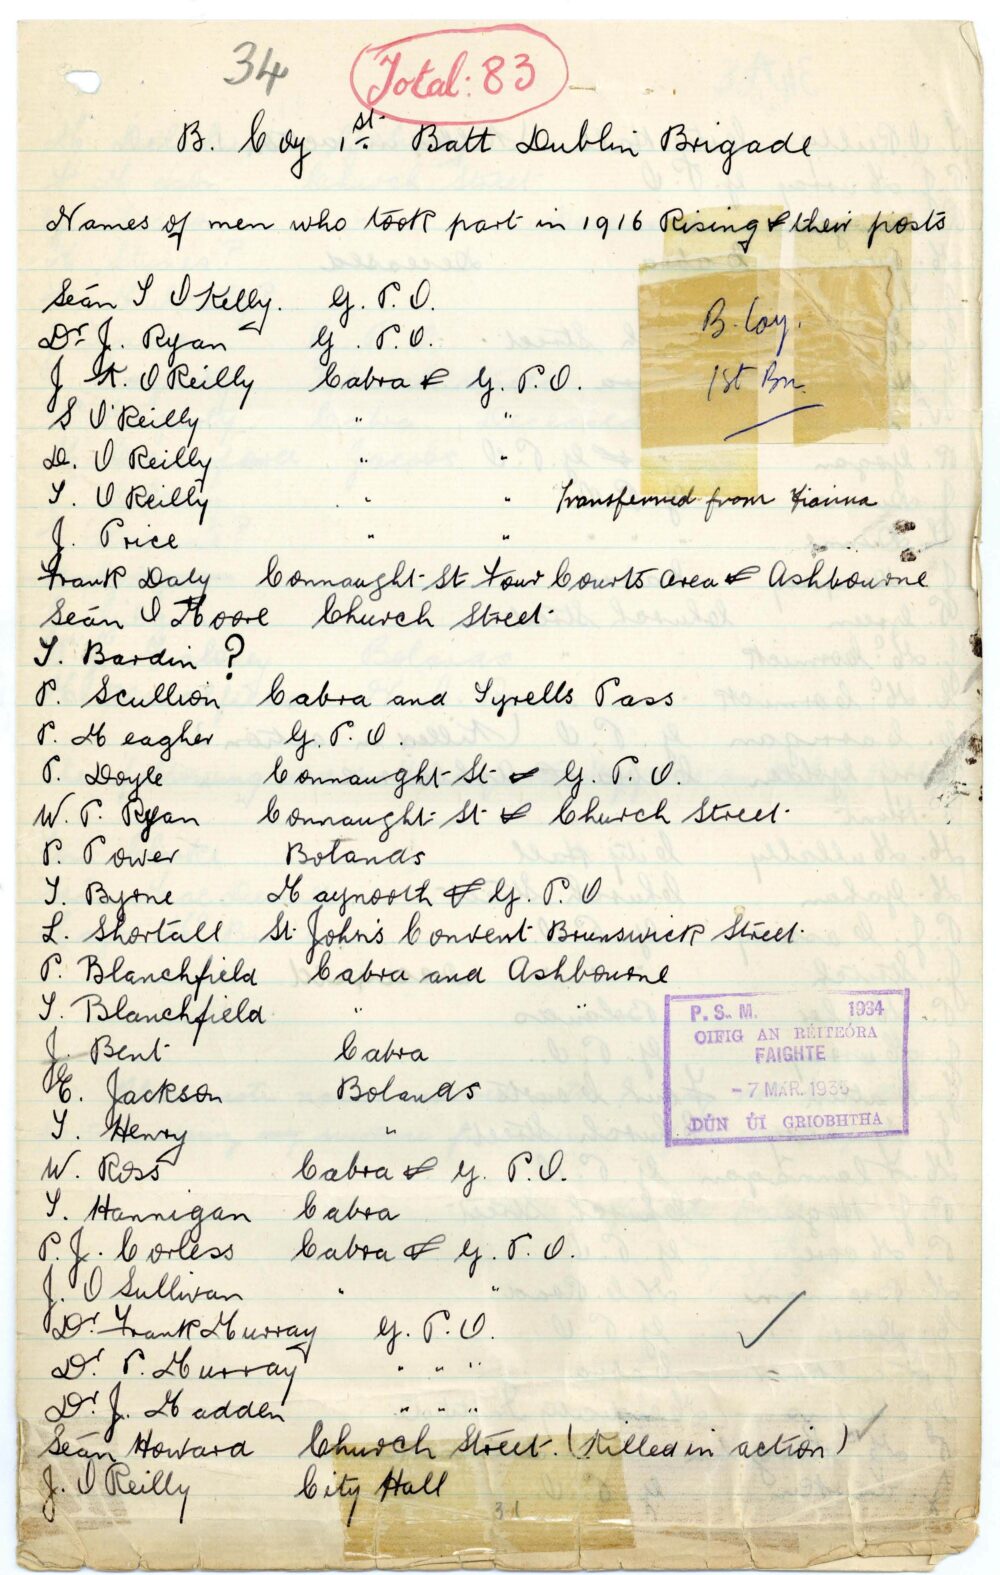 34
Total: 83
B. Coy 1st Batt Dublin Brigade
Names of men who took part in 1916 Rising & their posts
B. Coy.
1st Bn.
Seán T O Kelly. G. P. O.
Dr J. Ryan G. P. O.
J K. O Reilly Cabra & G. P. O.
S O'Reilly " "
D. O Reilly " "
T. O Reilly " " Transferred from Fianna
J. Price " "
Frank Daly Connaught St Four Courts area & Ashbourne
Seán O Moore Church Street
T. Bardin ?
P. Scullion Cabra and Tyrells Pass
P. Meagher G. P. O.
P. Doyle Connaught St & G. P. O.
W. P. Ryan Connaught St & Church Street
P. Power Bolands
T. Byrne Maynooth & G. P. O
L. Shortall St John's Convent Brunswick Street
P. Blanchfield Cabra and Ashbourne
T. Blanchfield " "
J. Bent Cabra
E. Jackson Bolands
T. Henry "
W. Ross Cabra & G. P. O.
T. Hannigan Cabra
P. J. Corless Cabra & G. P. O.
J. O Sullivan " "
Dr. Frank Murray G. P. O.
Dr. P. Murray " " "
Dr. J. Madden " " "
Seán Howard Church Street. (Killed in action)
J. O Reilly City Hall
31
P. S. M. 1934
OIFIG AN RÉITEÓRA
FAIGHTE
- 7 MAR. 1936
DÚN ÚI GRIOBHTHA